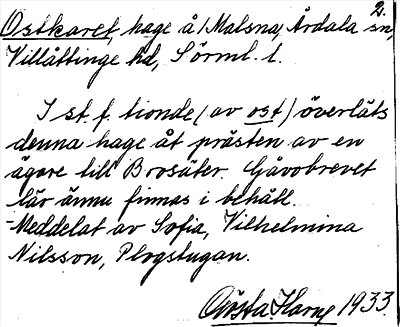 2.
Ostkaret, hage å Malsna, Årdala sn,
Villåttinge hd, Sörml. l.
I st. f. tionde (av ost) överläts
denna hage åt prästen av en
ägare till Brosäter. Gåvobrevet
lär ännu finnas i behåll.
Meddelat av Sofia, Vilhelmina
Nilsson, Plogstugan.
Gösta Harne 1933.